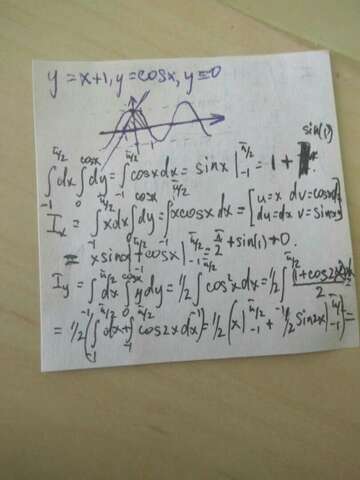 y = x+1, y = cosx, y = 0
-1
sin(1)
∫_{-1}^{π/2} dx ∫_0^{cosx} dy = ∫_{-1}^{π/2} cosxdx = sinx |_{-1}^{π/2} = 1 +
I_x = ∫_{-1}^{π/2} xdx ∫_0^{cosx} dy = ∫_{-1}^{π/2} xcosxdx = [u=x dv=cosxdx
du=dx v=sinx
= xsinx + cosx |_{-1}^{π/2} = π/2 + sin(1) + 0.
I_y = ∫_{-1}^{π/2} dx ∫_0^{cosx} ydy = 1/2 ∫_{-1}^{π/2} cos²xdx = 1/2 ∫_{-1}^{π/2} (1+cos2x)/2
= 1/2 (∫_{-1}^{π/2} dx + ∫_{-1}^{π/2} cos2xdx) = 1/2 (x |_{-1}^{π/2} + 1/2 sin2x |_{-1}^{π/2}) =